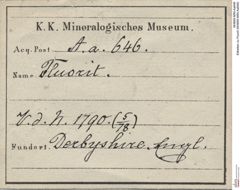 K. K. Mineralogisches Museum.
Acq. Post A. a. 646.
Name Fluorit.
V. d. N. 1790. (5/78)
Fundort. Derbyshire. Engl.